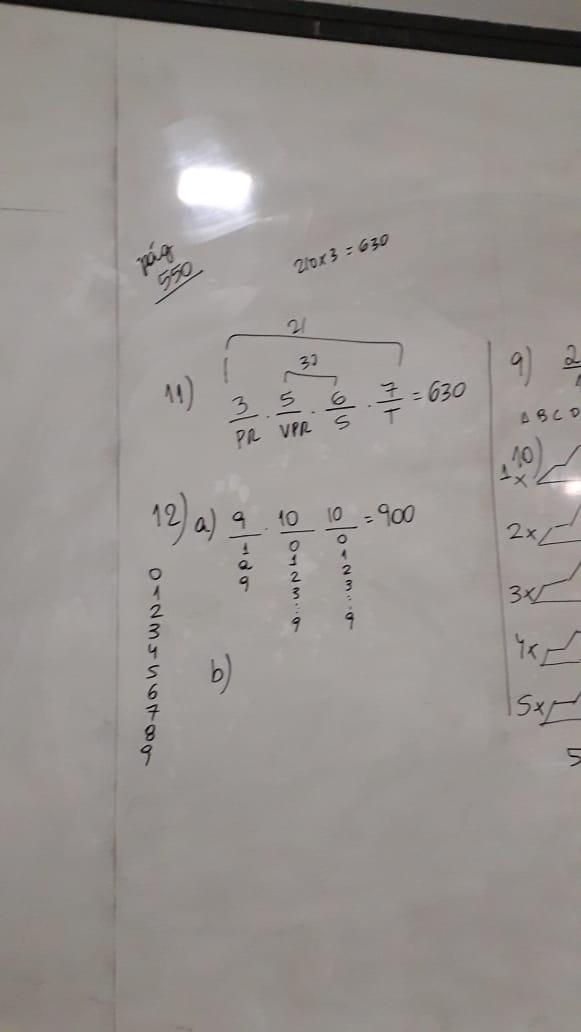 pág
550
210x3 = 630
21
30
11) 3/PR . 5/VPR . 6/S . 7/T = 630
12) a) 9 . 10 10 = 900
1 0 0
2 1 1
9 2 2
3 3
: :
9 9
0
1
2
3
4
5
6
7
8
9
b)
9) 2
1
A B C D
10)
1x
2x
3x
4x
5x
5